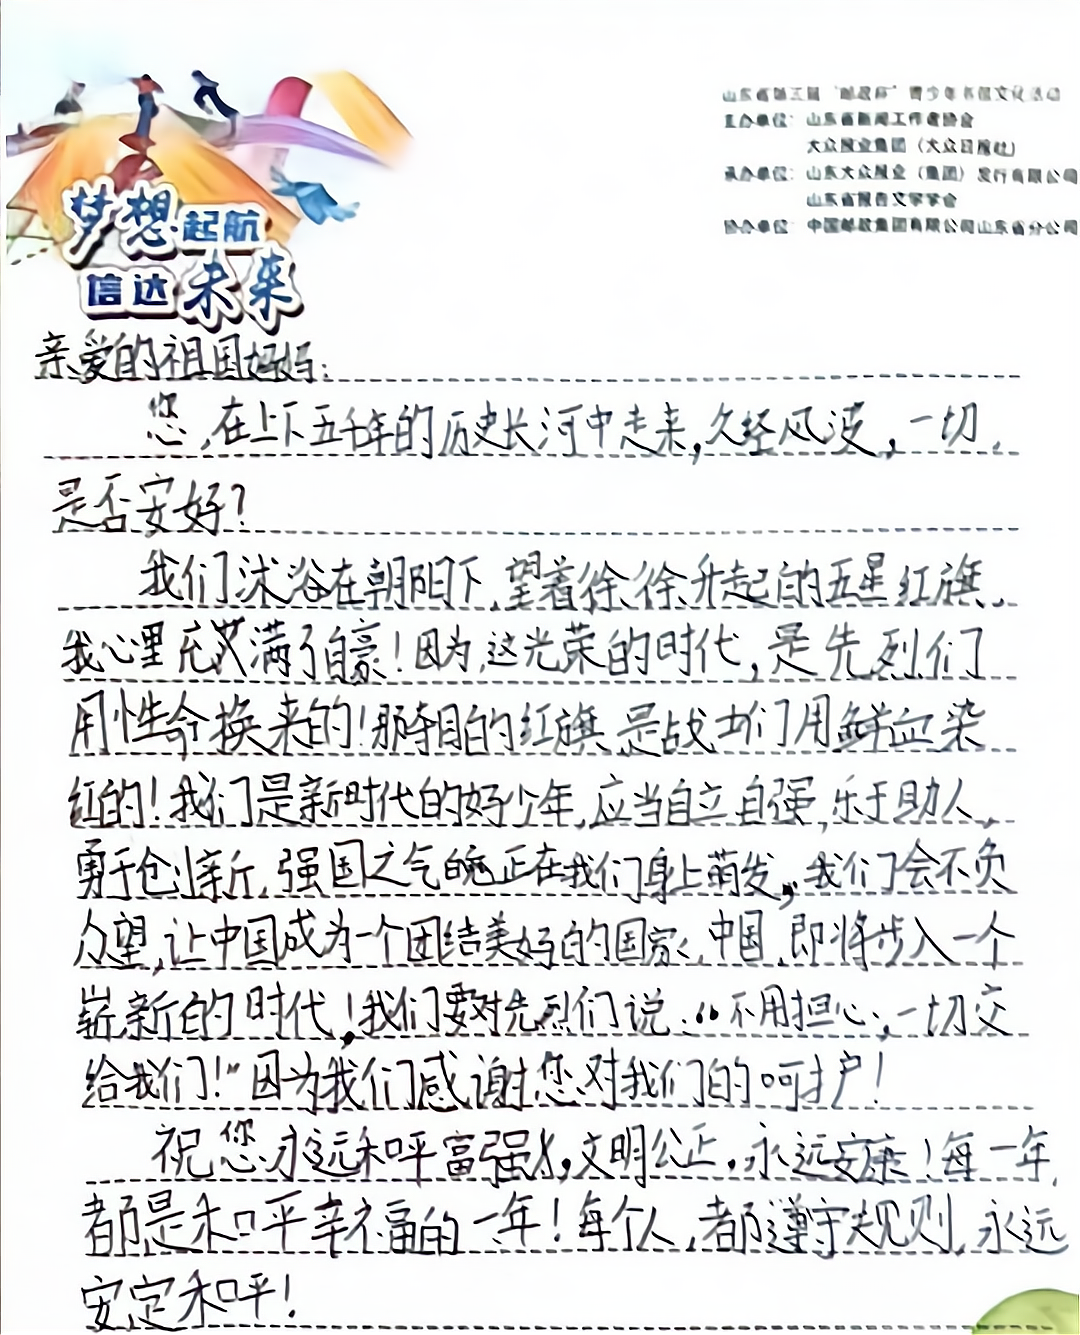 山东省第三届“邮政杯”青少年书信文化活动
主办单位：山东省新闻工作者协会
大众报业集团（大众日报社）
承办单位：山东大众报业（集团）发行有限公司
山东省报告文学学会
协办单位：中国邮政集团有限公司山东省分公司
梦想起航
信达未来
亲爱的祖国妈妈：
您，在上下五千年的历史长河中走来，久经风波，一切，
是否安好？
我们沐浴在朝阳下，望着徐徐升起的五星红旗，
我心里充满了自豪！因为，这光荣的时代，是先烈们
用性命换来的！那夺目的红旗，是战士们用鲜血染
红的！我们是新时代的好少年，应当自立自强，乐于助人，
勇于创新，强国之气魄正在我们身上萌发，我们会不负
众望，让中国成为一个团结美好的国家，中国，即将步入一个
崭新的时代！我们要对先烈们说：“不用担心，一切交
给我们！”因为我们感谢您对我们的呵护！
祝您永远和平富强，文明公正，永远安康！每一年，
都是和平幸福的一年！每个人，都遵守规则，永远
安定和平！